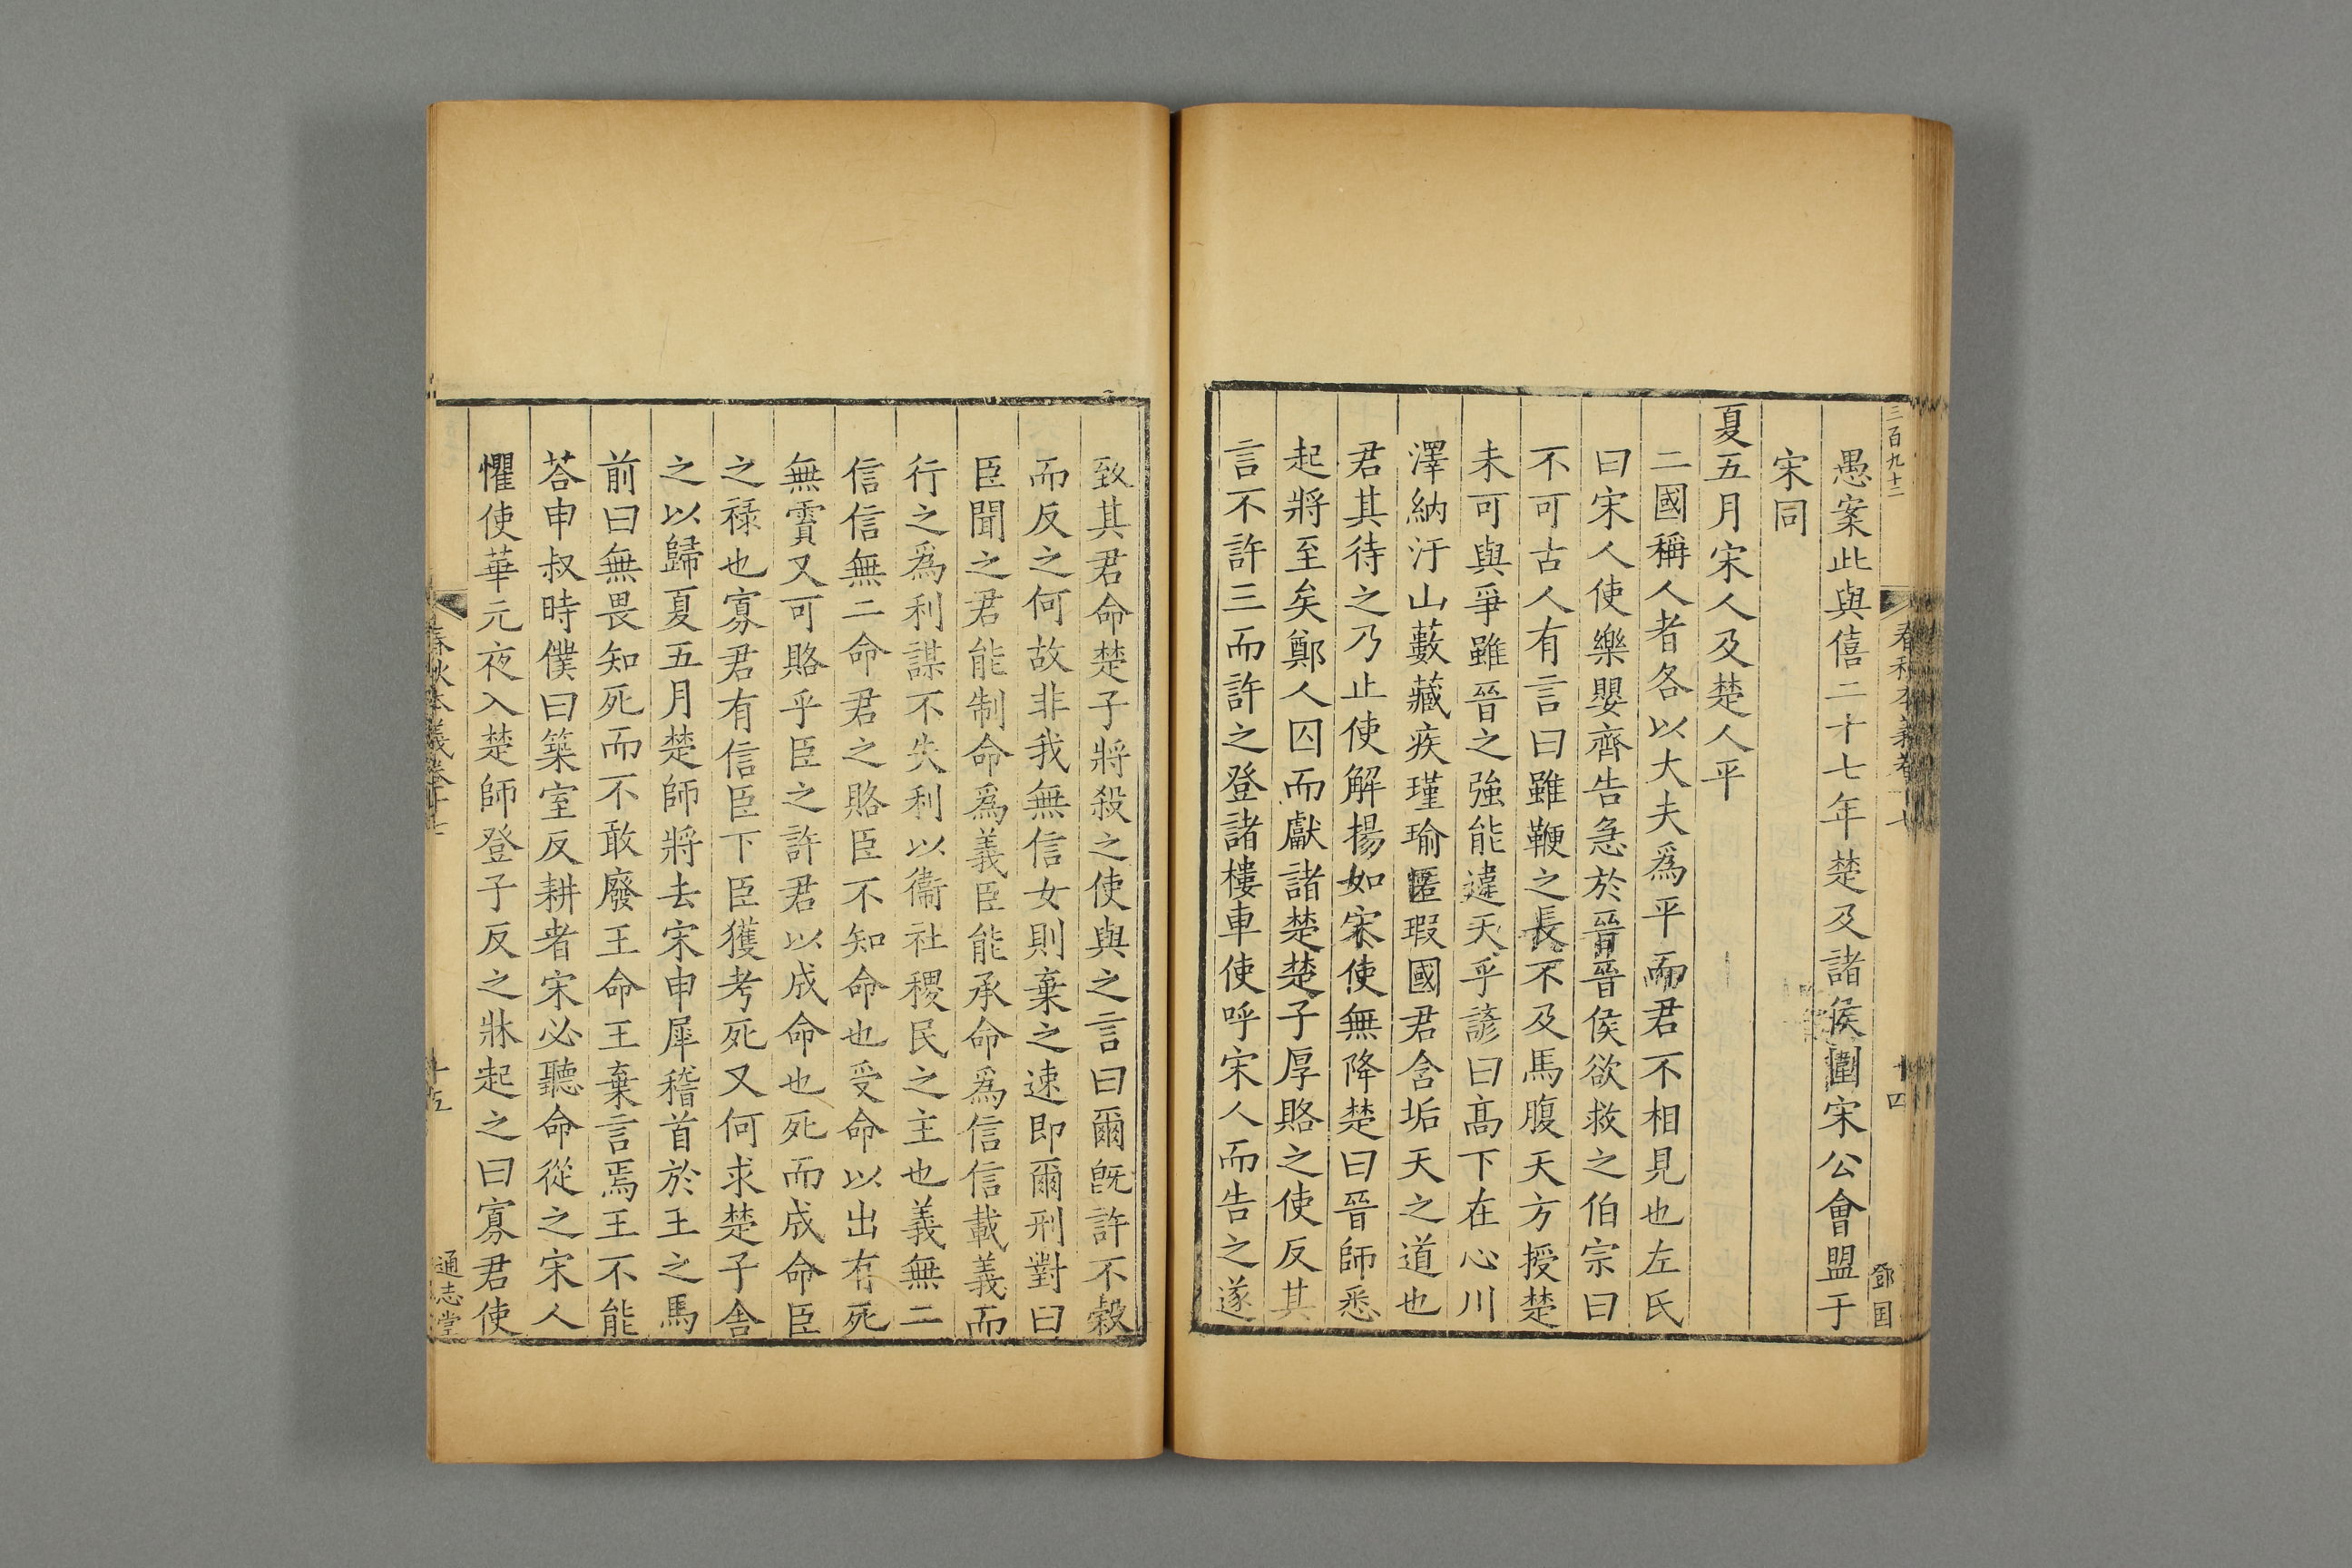 三百九十二
春秋本義卷十七
十四
鄧国
愚案此與僖二十七年楚及諸侯圍宋公會盟于
宋同
夏五月宋人及楚人平
二國稱人者各以大夫爲平而君不相見也左氏
曰宋人使樂嬰齊告急於晉晉侯欲救之伯宗曰
不可古人有言曰雖鞭之長不及馬腹天方授楚
未可與爭雖晉之強能違天乎諺曰髙下在心川
澤納汙山藪藏疾瑾瑜匿瑕國君含垢天之道也
君其待之乃止使解揚如宋使無降楚曰晉師悉
起將至矣鄭人囚而獻諸楚楚子厚賂之使反其
言不許三而許之登諸樓車使呼宋人而告之遂
致其君命楚子將殺之使與之言曰爾旣許不榖
而反之何故非我無信女則棄之速即爾刑對曰
臣聞之君能制命爲義臣能承命爲信信載義而
行之爲利謀不失利以衞社稷民之主也義無二
信信無二命君之賂臣不知命也受命以出有死
無霣又可賂乎臣之許君以成命也死而成命臣
之禄也寡君有信臣下臣獲考死又何求楚子舍
之以歸夏五月楚師將去宋申犀稽首於王之馬
前曰無畏知死而不敢廢王命王棄言焉王不能
荅申叔時僕曰築室反耕者宋必聽命從之宋人
懼使華元夜入楚師登子反之牀起之曰寡君使
春秋本義卷十七
十五
通志堂